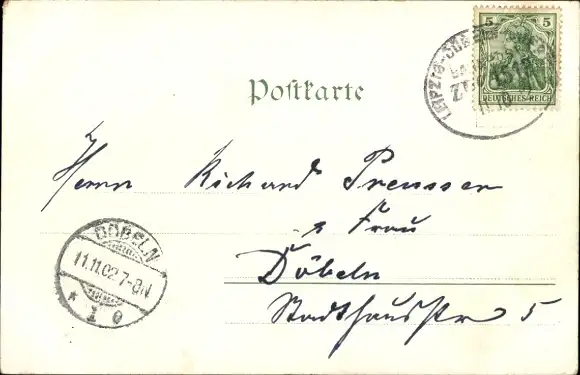 5 5
DEUTSCHES REICH
LEIPZIG-DÖBELN
Postkarte
Herrn Richard Preusser
& Frau
Döbeln
Stadthausstr 5
DÖBELN
11.11.02 7-8N
* 1 e